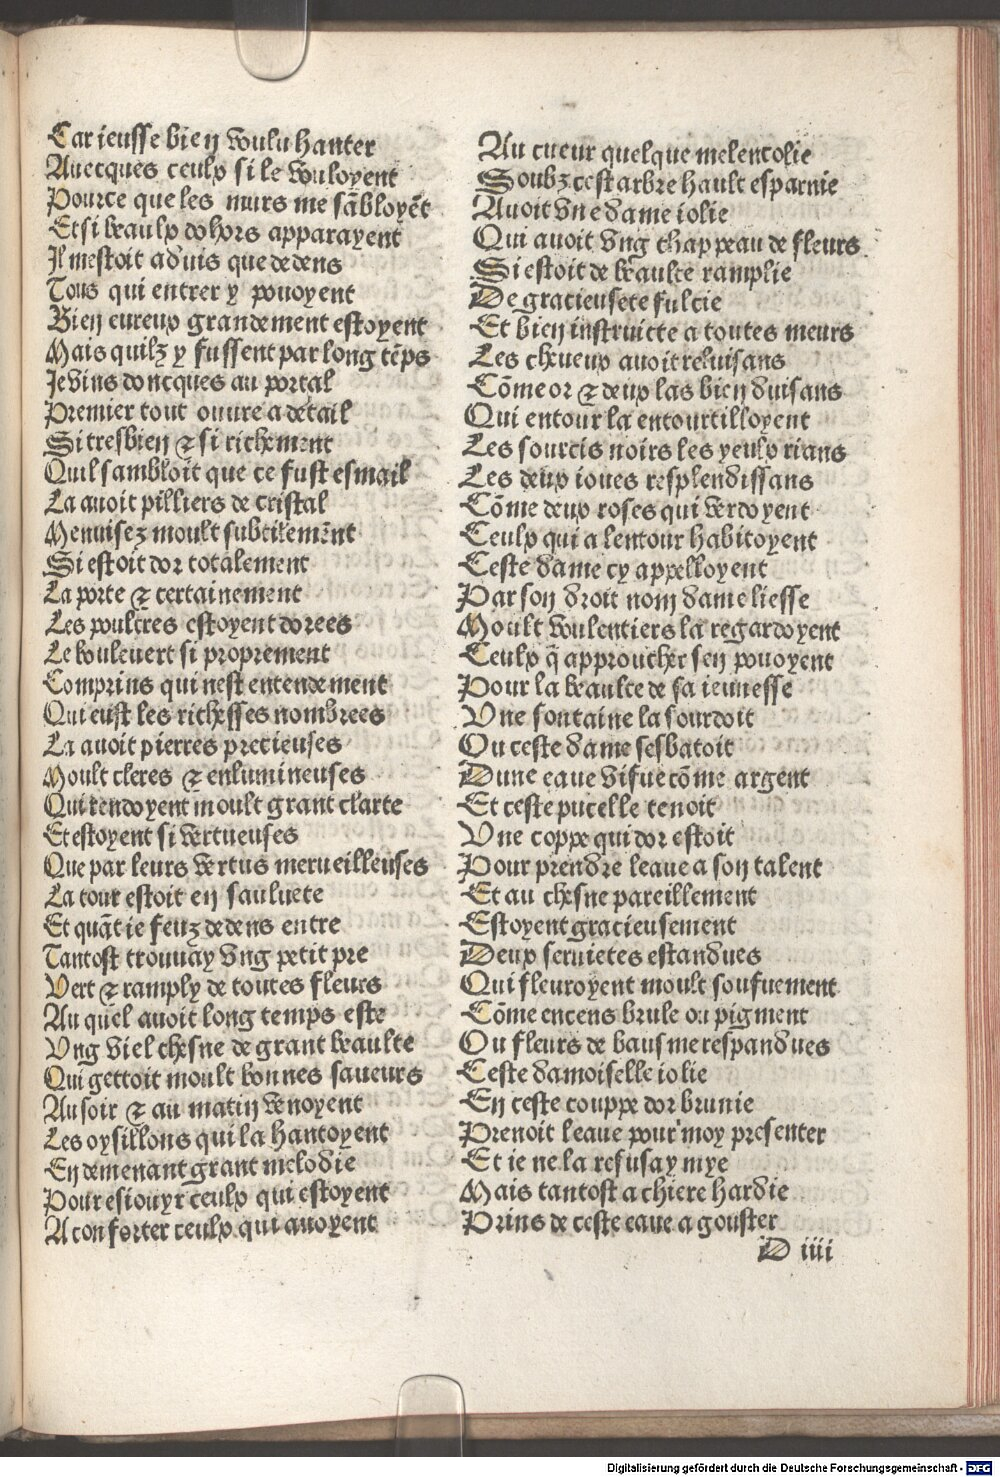 Car ieusse bien voulu hanter
Auecques ceulx si le vouloyent
Pource que les murs me sãbloyẽt
Et si beaulx dohors apparayent
Il mestoit aduis que dedens
Tous qui entrer y pouoyent
Bien eureux grandement estoyent
Mais quilz y fussent par long tẽps
Ie vins doncques au portal
Premier tout ouure a detail
Si tresbien ⁊ si richement
Quil sambloit que ce fust esmail
La auoit pilliers de cristal
Menuisez moult subtilemẽnt
Si estoit dor totalement
La porte ⁊ certainement
Les poultres estoyent dorees
Le bouleuert si proprement
Comprins qui nest entendement
Qui eust les richesses nombrees
La auoit pierres precieuses
Moult cleres ⁊ enlumineuses
Qui rendoyent moult grant clarte
Et estoyent si vertueuses
Que par leurs vertus merueilleuses
La tour estoit en sauluete
Et quãt ie feuz dedens entre
Tantost trouuay vng petit pre
Vert ⁊ ramply de toutes fleurs
Au quel auoit long temps este
Vng viel chesne de grant beaulte
Qui gettoit moult bonnes saueurs
Au soir ⁊ au matin venoyent
Les oysillons qui la hantoyent
En demenant grant melodie
Pour esiouyr ceulx qui estoyent
A conforter ceulx qui auoyent
Au cueur quelque melencolie
Soubz cest arbre hault esparnie
Auoit vne dame iolie
Qui auoit vng chappeau de fleurs
Si estoit de beaulte ramplie
De gracieusete fulcie
Et bien instruicte a toutes meurs
Les cheueux auoit reluisans
Cõme or ⁊ deux las bien duisans
Qui entour la entourtilloyent
Les sourcis noirs les yeulx rians
Les deux ioues resplendissans
Cõme deux roses qui verdoyent
Ceulx qui a lentour habitoyent
Ceste dame cy appelloyent
Par son droit nom dame liesse
Moult voulentiers la regardoyent
Ceulx q̃ approucher sen pouoyent
Pour la beaulte de sa ieunesse
Vne fontaine la sourdoit
Ou ceste dame sesbatoit
Dune eaue vifue cõme argent
Et ceste pucelle tenoit
Vne coppe qui dor estoit
Pour prendre leaue a son talent
Et au chesne pareillement
Estoyent gracieusement
Deux seruietes estandues
Qui fleuroyent moult soufuement
Cõme encens brule ou pigment
Ou fleurs de bausme respandues
Ceste damoiselle iolie
En ceste couppe dor brunie
Prenoit leaue pour moy presenter
Et ie ne la refusay mye
Mais tantost a chiere hardie
Prins de ceste eaue a gouster
D iiii
Digitalisierung gefördert durch die Deutsche Forschungsgemeinschaft - DFG